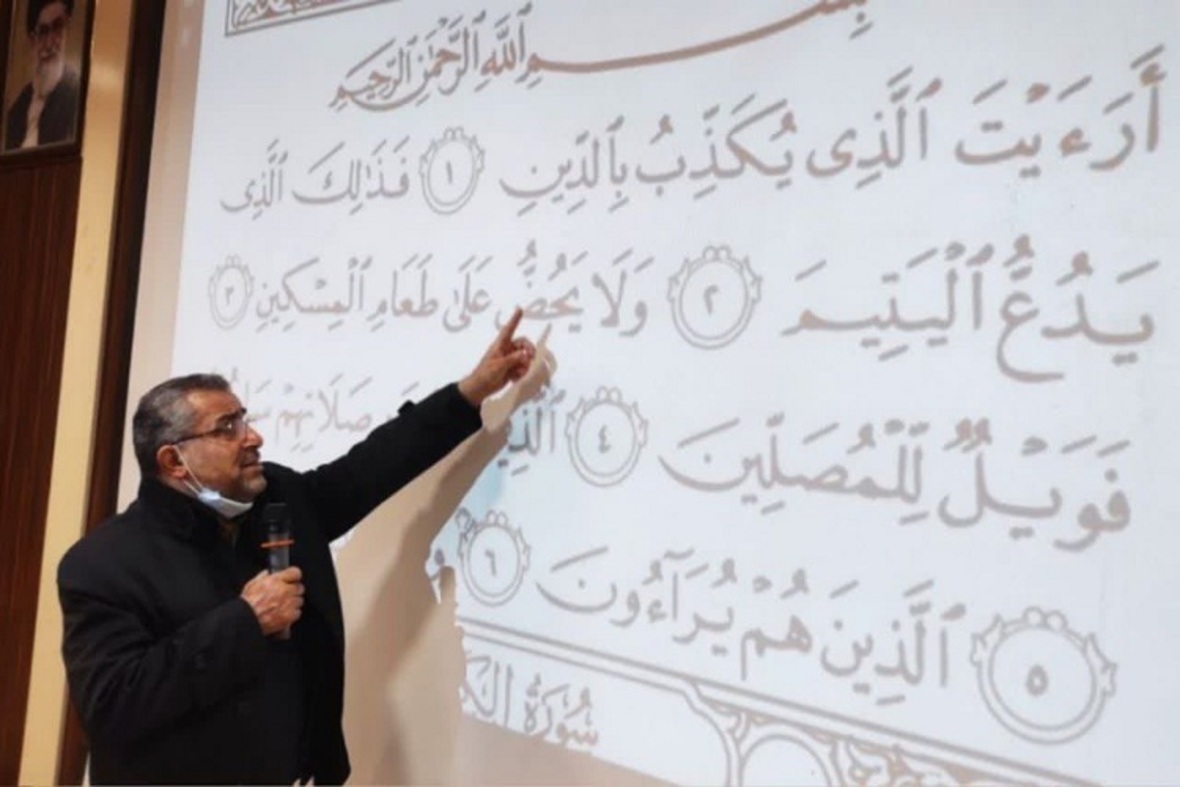 بِسْمِ ٱللَّهِ ٱلرَّحْمَٰنِ ٱلرَّحِيمِ
أَرَءَيْتَ ٱلَّذِى يُكَذِّبُ بِٱلدِّينِ ١ فَذَٰلِكَ ٱلَّذِى
يَدُعُّ ٱلْيَتِيمَ ٢ وَلَا يَحُضُّ عَلَىٰ طَعَامِ ٱلْمِسْكِينِ ٣
فَوَيْلٌ لِّلْمُصَلِّينَ ٤ صَلَاتِهِمْ
٥ ٱلَّذِينَ هُمْ يُرَآءُونَ ٦
سُورَةُ